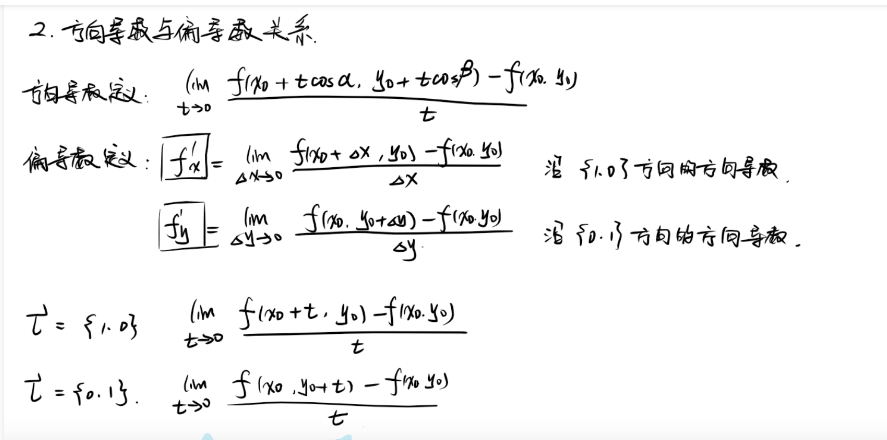 2. 方向导数与偏导数关系.
方向导数定义: lim_{t→0} \frac{f(x_0+tcosα, y_0+tcosβ)-f(x_0.y_0)}{t}
偏导数定义: f'_x = lim_{Δx→0} \frac{f(x_0+Δx, y_0)-f(x_0.y_0)}{Δx} 沿{1.0}方向的方向导数.
f'_y = lim_{Δy→0} \frac{f(x_0. y_0+Δy)-f(x_0.y_0)}{Δy} 沿{0.1}方向的方向导数.
\vec{l} = {1.0} lim_{t→0} \frac{f(x_0+t, y_0)-f(x_0.y_0)}{t}
\vec{l} = {0.1}. lim_{t→0} \frac{f(x_0, y_0+t)-f(x_0 y_0)}{t}